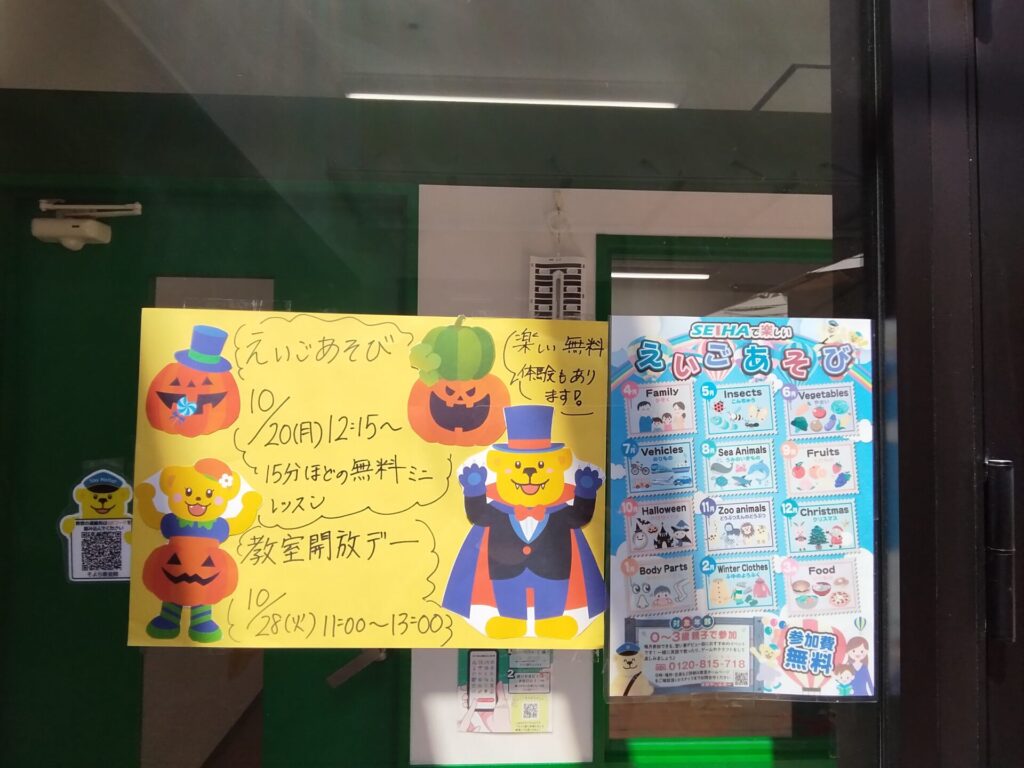 えいごあそび
10/20(月)12:15〜
15分ほどの無料ミニ
レッスン
教室開放デー
10/28(火)11:00〜13:00
楽しい無料
体験もあり
ます!
SEIHAで楽しい
えいごあそび
4月 Family
かぞく
5月 Insects
こんちゅう
6月 Vegetables
やさい
7月 Vehicles
のりもの
8月 Sea Animals
うみのいきもの
9月 Fruits
10月 Halloween
11月 Zoo animals
どうぶつえんのどうぶつ
12月 Christmas
クリスマス
1月 Body Parts
2月 Winter Clothes
ふゆのようふく
3月 Food
対象年齢
0〜3歳親子で参加
0120-815-718
参加費
無料